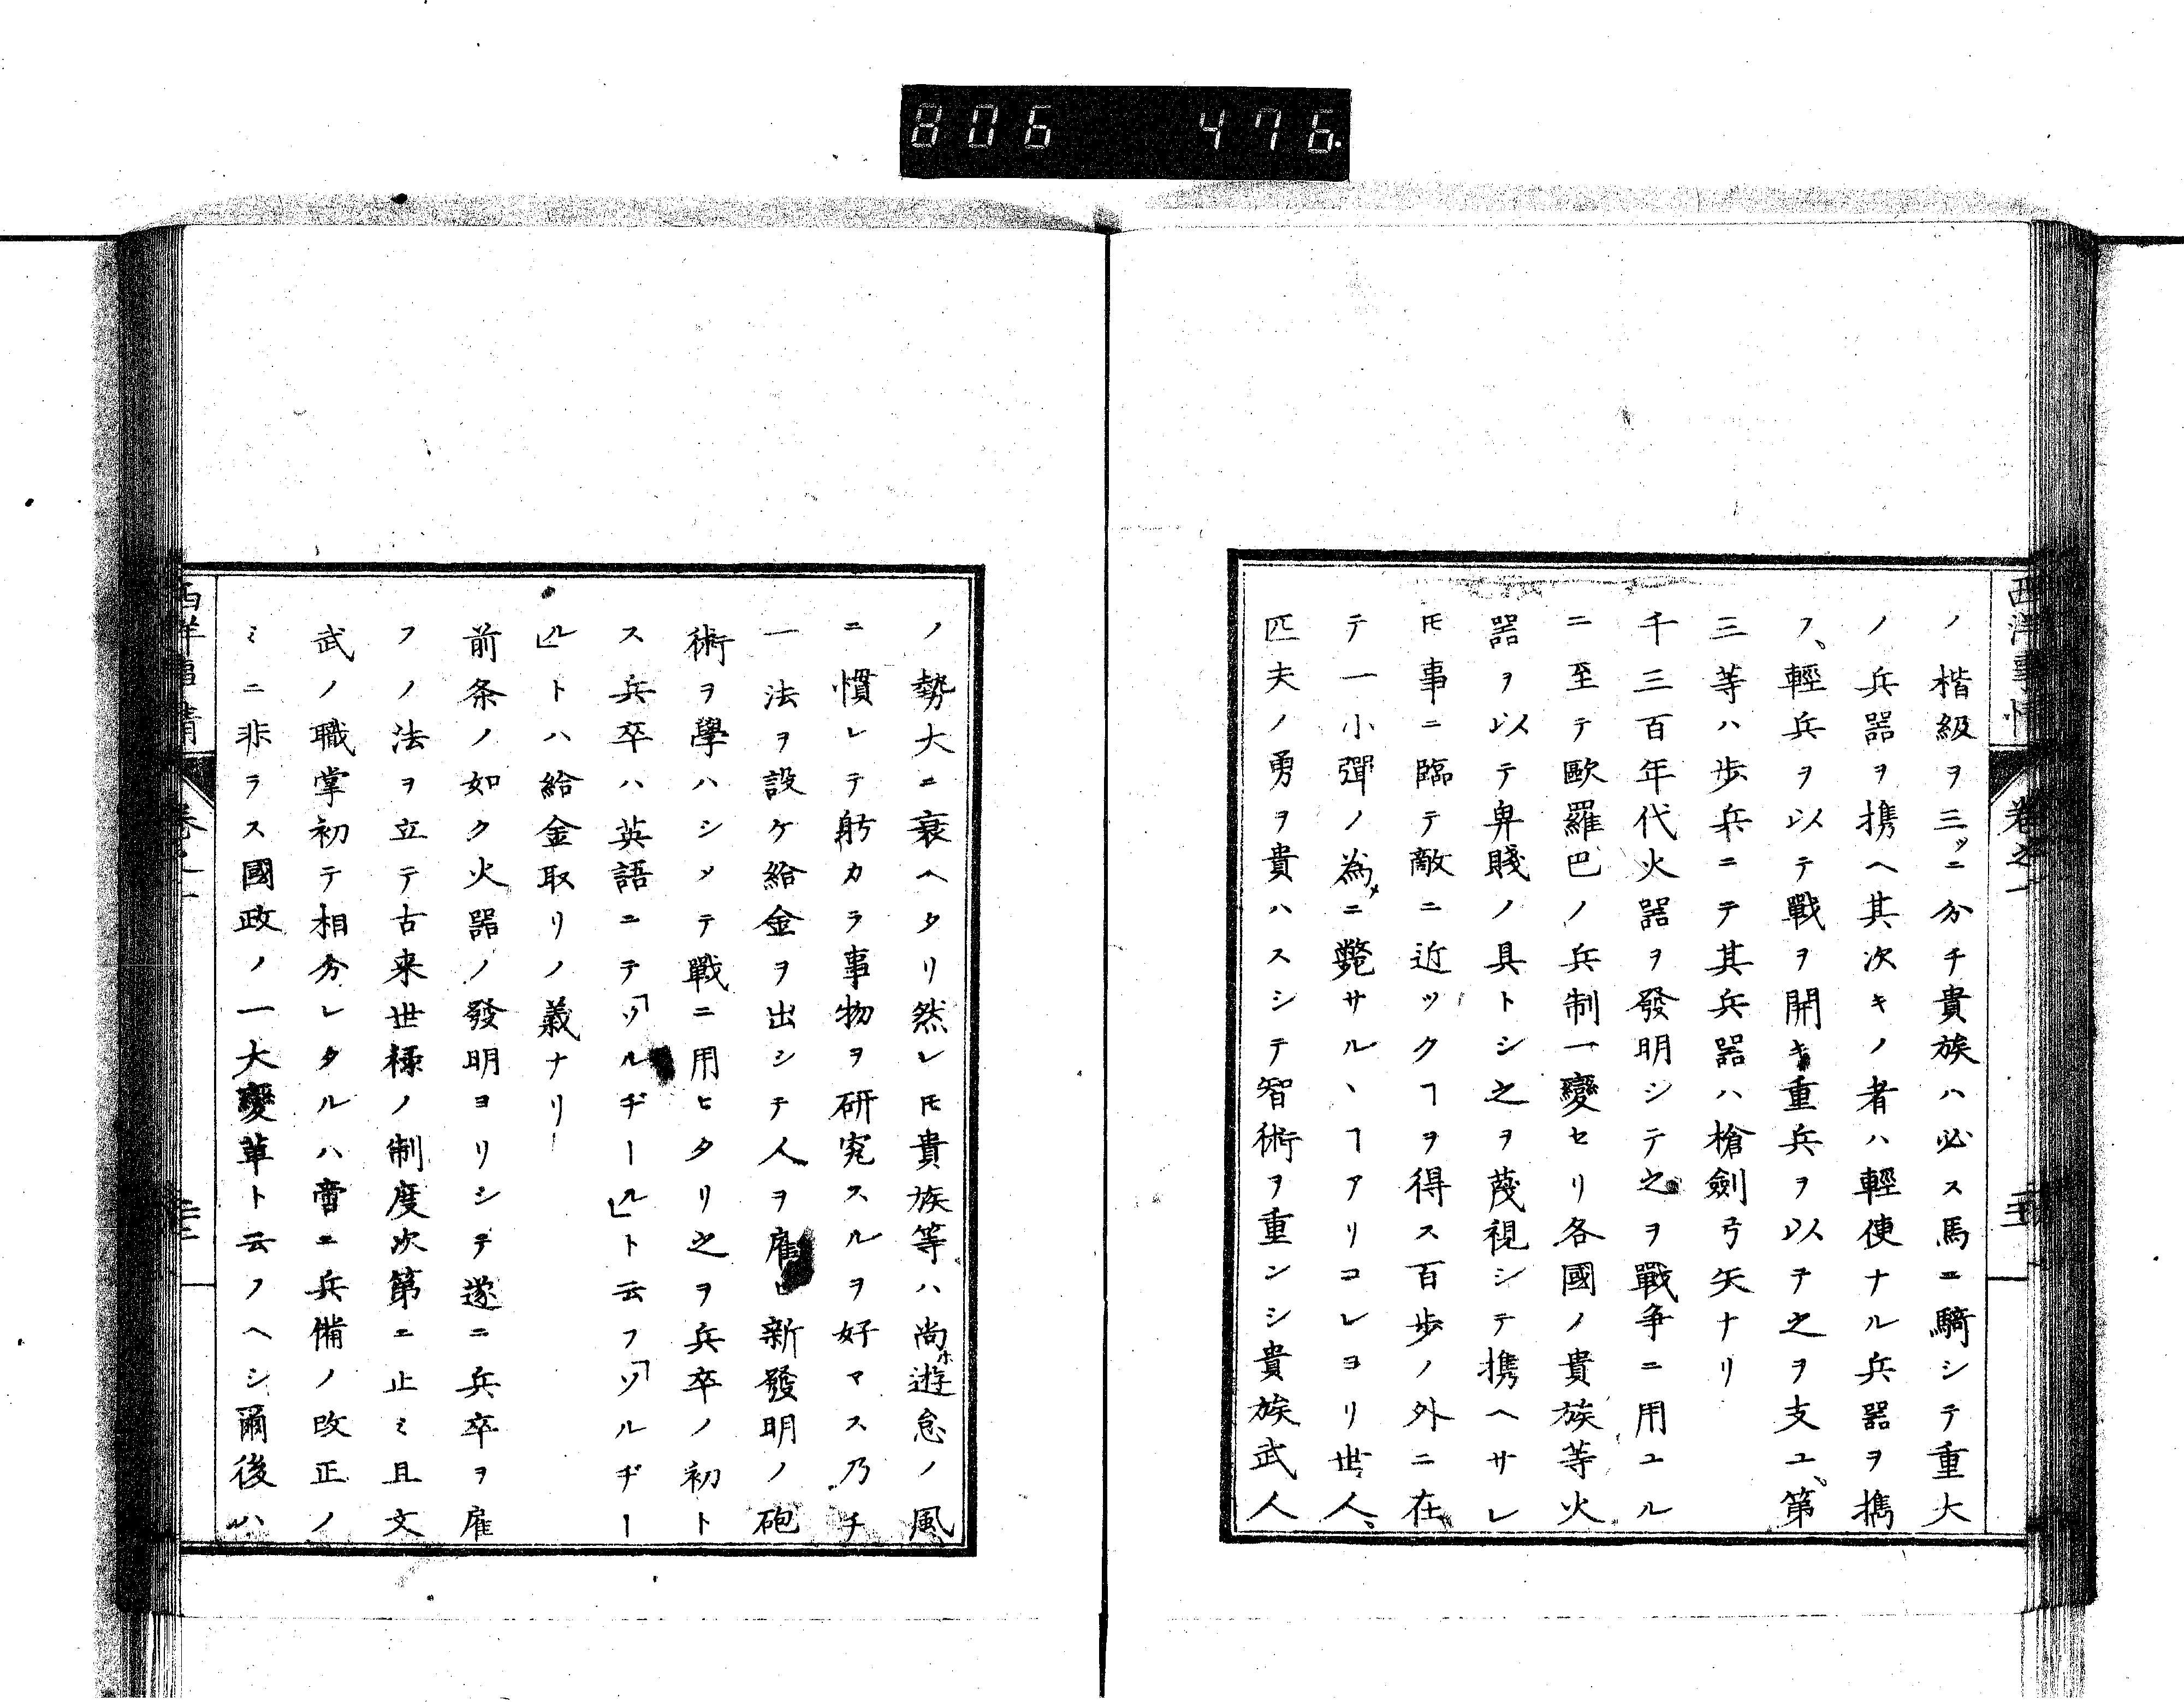 806 476.
西洋事情 卷之一
ノ楷級ヲ三ッニ分チ貴族ハ必ス馬ニ騎シテ重大
ノ兵噐ヲ携ヘ其次キノ者ハ輕使ナル兵噐ヲ携
フ、輕兵ヲ以テ戰ヲ開キ重兵ヲ以テ之ヲ支ユ、第
三等ハ歩兵ニテ其兵噐ハ槍劍弓矢ナリ
千三百年代火噐ヲ發明シテ之ヲ戰争ニ用ユル
ニ至テ歐羅巴ノ兵制一變セリ各國ノ貴族等火
噐ヲ以テ卑賤ノ具トシ之ヲ蔑視シテ携ヘサレ
𪜈事ニ臨テ敵ニ近ックヿヲ得ス百歩ノ外ニ在
テ一小彈ノ為メニ斃サルヽヿアリコレヨリ世人、
匹夫ノ勇ヲ貴ハスシテ智術ヲ重ンシ貴族武人
ノ勢大ニ衰ヘタリ然レ𪜈貴族等ハ尚ホ遊怠ノ風
ニ慣レテ躬カラ事物ヲ研究スルヲ好マス乃チ
一法ヲ設ケ給金ヲ出シテ人ヲ雇ヒ新發明ノ砲
術ヲ學ハシメテ戰ニ用ヒタリ之ヲ兵卒ノ初ト
ス兵卒ハ英語ニテ「ソルヂール」ト云フ「ソルヂー
ル」トハ給金取リノ義ナリ
前条ノ如ク火噐ノ發明ヨリシテ遂ニ兵卒ヲ雇
フノ法ヲ立テ古来世祿ノ制度次第ニ止ミ且文
武ノ職掌初テ相分レタルハ啻ニ兵備ノ改正ノ
ミニ非ラス國政ノ一大變革ト云フヘシ爾後ハ
西洋事情 卷之一